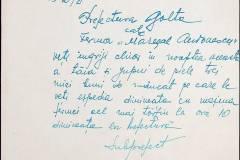 Prefectura Golta
către
Ferma "Mareșal Antonescu"
Veți îngriji chiar în noaptea aceasta
a tăia și jupui de piele trei
miei buni de mâncat pe care le
veți expedia dimineața cu mașina
fermei cel mai târziu la ora 10
dimineața la prefectură
Subprefect